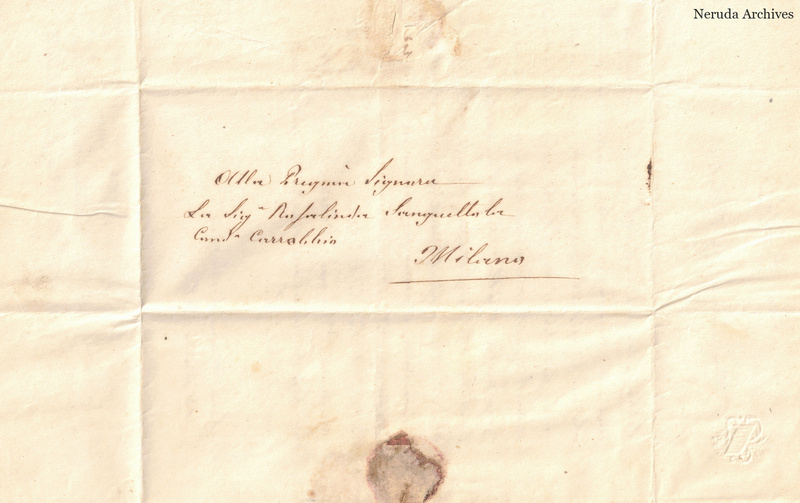 Neruda Archives
Alla Pregma Signora
La Sig.ª Rosalinda Sanguettola
Cont.ª Carrobbio
Milano